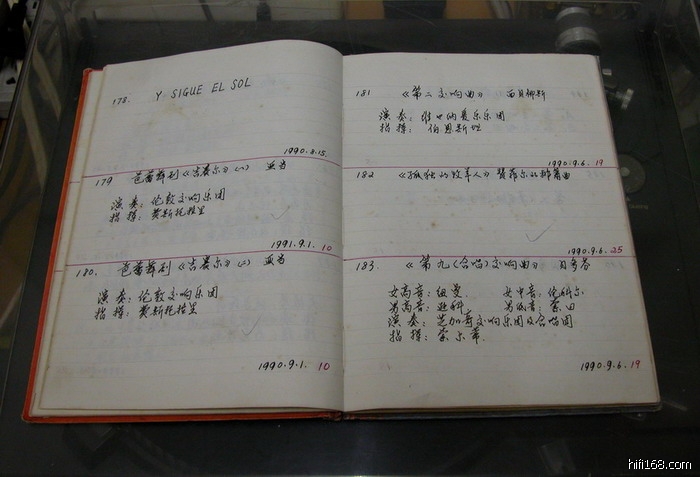 178. Y SIGUE EL SOL
1990.8.15.
179 芭蕾舞剧《吉赛尔》(一) 亚当
演奏: 伦敦交响乐团
指挥: 费斯托拉里
1991.9.1. 10
180. 芭蕾舞剧《吉赛尔》(二) 亚当
演奏: 伦敦交响乐团
指挥: 费斯托拉里
1990.9.1. 10
181 《第二交响曲》 西贝柳斯
演奏: 维也纳爱乐乐团
指挥: 伯恩斯坦
1990.9.6. 19
182 《孤独的牧羊人》 赞菲尔的排箫曲
1990.9.6. 25
183. 《第九(合唱)交响曲》 贝多芬
女高音: 纽曼 女中音:
男高音: 男低音:
演奏: 芝加哥交响乐团及合唱团
指挥: 索尔蒂
1990.9.6. 19
hifi168.com